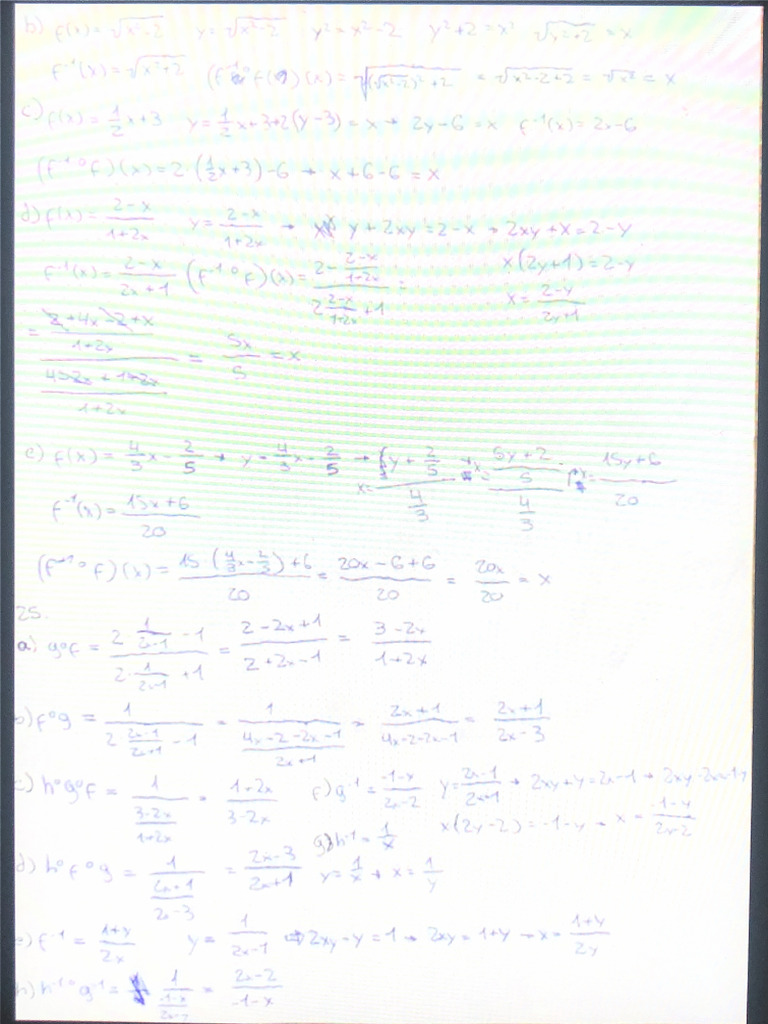 b) f(x) = √(x²-2)   y = √(x²-2)   y² = x²-2   y²+2 = x²   √(y²+2) = x
f⁻¹(x) = √(x²+2)   (f⁻¹∘f)(x) = √((√(x²-2))²+2) = √(x²-2+2) = √x² = x
c) f(x) = 1/2 x+3   y = 1/2 x+3 → 2(y-3) = x → 2y-6 = x   f⁻¹(x) = 2x-6
(f⁻¹∘f)(x) = 2·(1/2 x+3)-6 → x+6-6 = x
d) f(x) = (2-x)/(1+2x)   y = (2-x)/(1+2x) → y+2xy = 2-x → 2xy+x = 2-y
f⁻¹(x) = (2-x)/(2x+1)   (f⁻¹∘f)(x) = (2-(2-x)/(1+2x))/(2(2-x)/(1+2x)+1) =   x(2y+1) = 2-y
x = (2-y)/(2y+1)
= ((2+4x-2+x)/(1+2x))/((4-2x+1+2x)/(1+2x)) = 5x/5 = x
e) f(x) = 4/3 x - 2/5 → y = 4/3 x - 2/5 → x = (y+2/5)/(4/3) → x = ((5y+2)/5)/(4/3) → x = (15y+6)/20
f⁻¹(x) = (15x+6)/20
(f⁻¹∘f)(x) = (15·(4/3 x - 2/5)+6)/20 = (20x-6+6)/20 = 20x/20 = x
25.
a) g∘f = (2·1/(2x-1) -1)/(2·1/(2x-1) +1) = (2-2x+1)/(2+2x-1) = (3-2x)/(1+2x)
b) f∘g = 1/(2(2x-1)/(2x+1) -1) = 1/((4x-2-2x-1)/(2x+1)) = (2x+1)/(4x-2-2x-1) = (2x+1)/(2x-3)
c) h∘g∘f = 1/((3-2x)/(1+2x)) = (1+2x)/(3-2x)   f) g⁻¹ = (-1-x)/(2x-2)   y = (2x-1)/(2x+1) → 2xy+y = 2x-1 → 2xy-2x=-1-y
x(2y-2) = -1-y → x = (-1-y)/(2y-2)
g) h⁻¹ = 1/x
d) h∘f∘g = 1/((2x+1)/(2x-3)) = (2x-3)/(2x+1)   y = 1/x → x = 1/y
e) f⁻¹ = (1+x)/2x   y = 1/(2x-1) → 2xy-y = 1 → 2xy = 1+y → x = (1+y)/2y
h) h⁻¹∘g⁻¹ = 1/((-1-x)/(2x-2)) = (2x-2)/(-1-x)